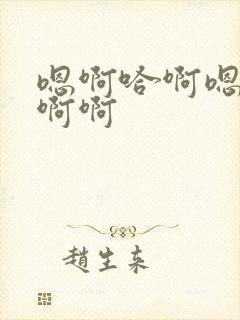 嗯啊哈~啊嗯
啊啊
趙生来